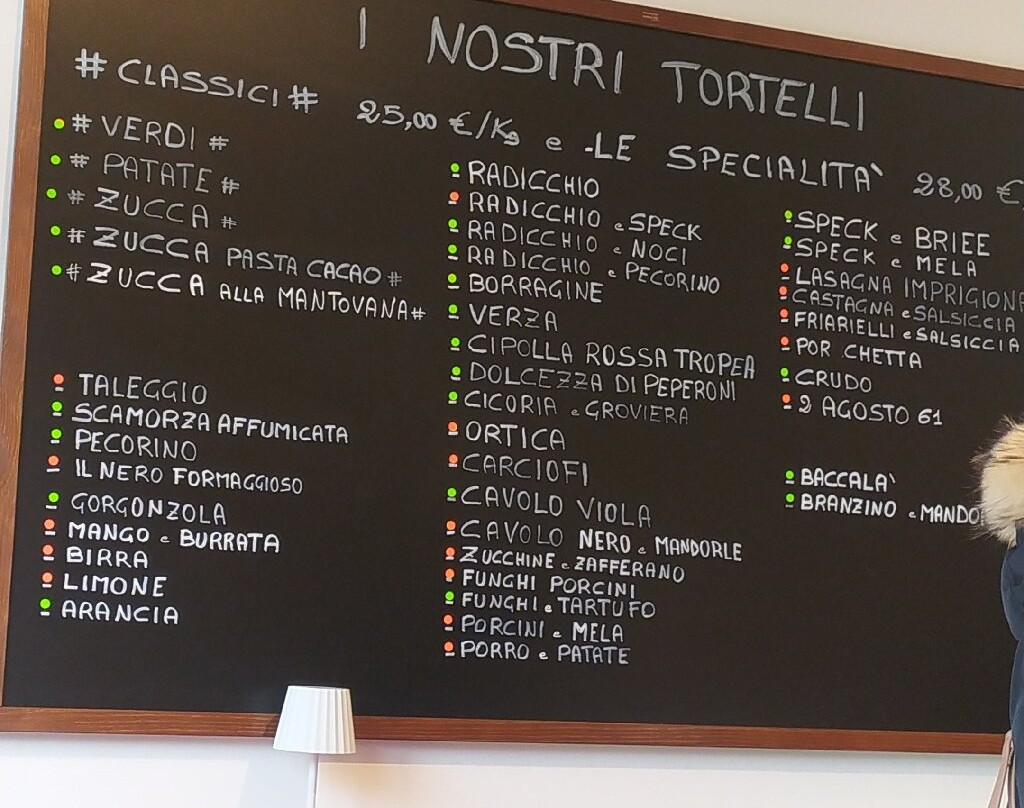 I NOSTRI TORTELLI
# CLASSICI # 25,00 €/Kg e -LE SPECIALITA' 28,00 €
# VERDI #
# PATATE #
# ZUCCA #
# ZUCCA PASTA CACAO #
# ZUCCA ALLA MANTOVANA #
TALEGGIO
SCAMORZA AFFUMICATA
PECORINO
IL NERO FORMAGGIOSO
GORGONZOLA
MANGO e BURRATA
BIRRA
LIMONE
ARANCIA
RADICCHIO
RADICCHIO e SPECK
RADICCHIO e NOCI
RADICCHIO e PECORINO
BORRAGINE
VERZA
CIPOLLA ROSSA TROPEA
DOLCEZZA DI PEPERONI
CICORIA e GROVIERA
ORTICA
CARCIOFI
CAVOLO VIOLA
CAVOLO NERO e MANDORLE
ZUCCHINE e ZAFFERANO
FUNGHI PORCINI
FUNGHI e TARTUFO
PORCINI e MELA
PORRO e PATATE
SPECK e BRIEE
SPECK e MELA
LASAGNA IMPRIGIONA
CASTAGNA e SALSICCIA
FRIARIELLI e SALSICCIA
POR CHETTA
CRUDO
2 AGOSTO 61
BACCALA'
BRANZINO e MANDO